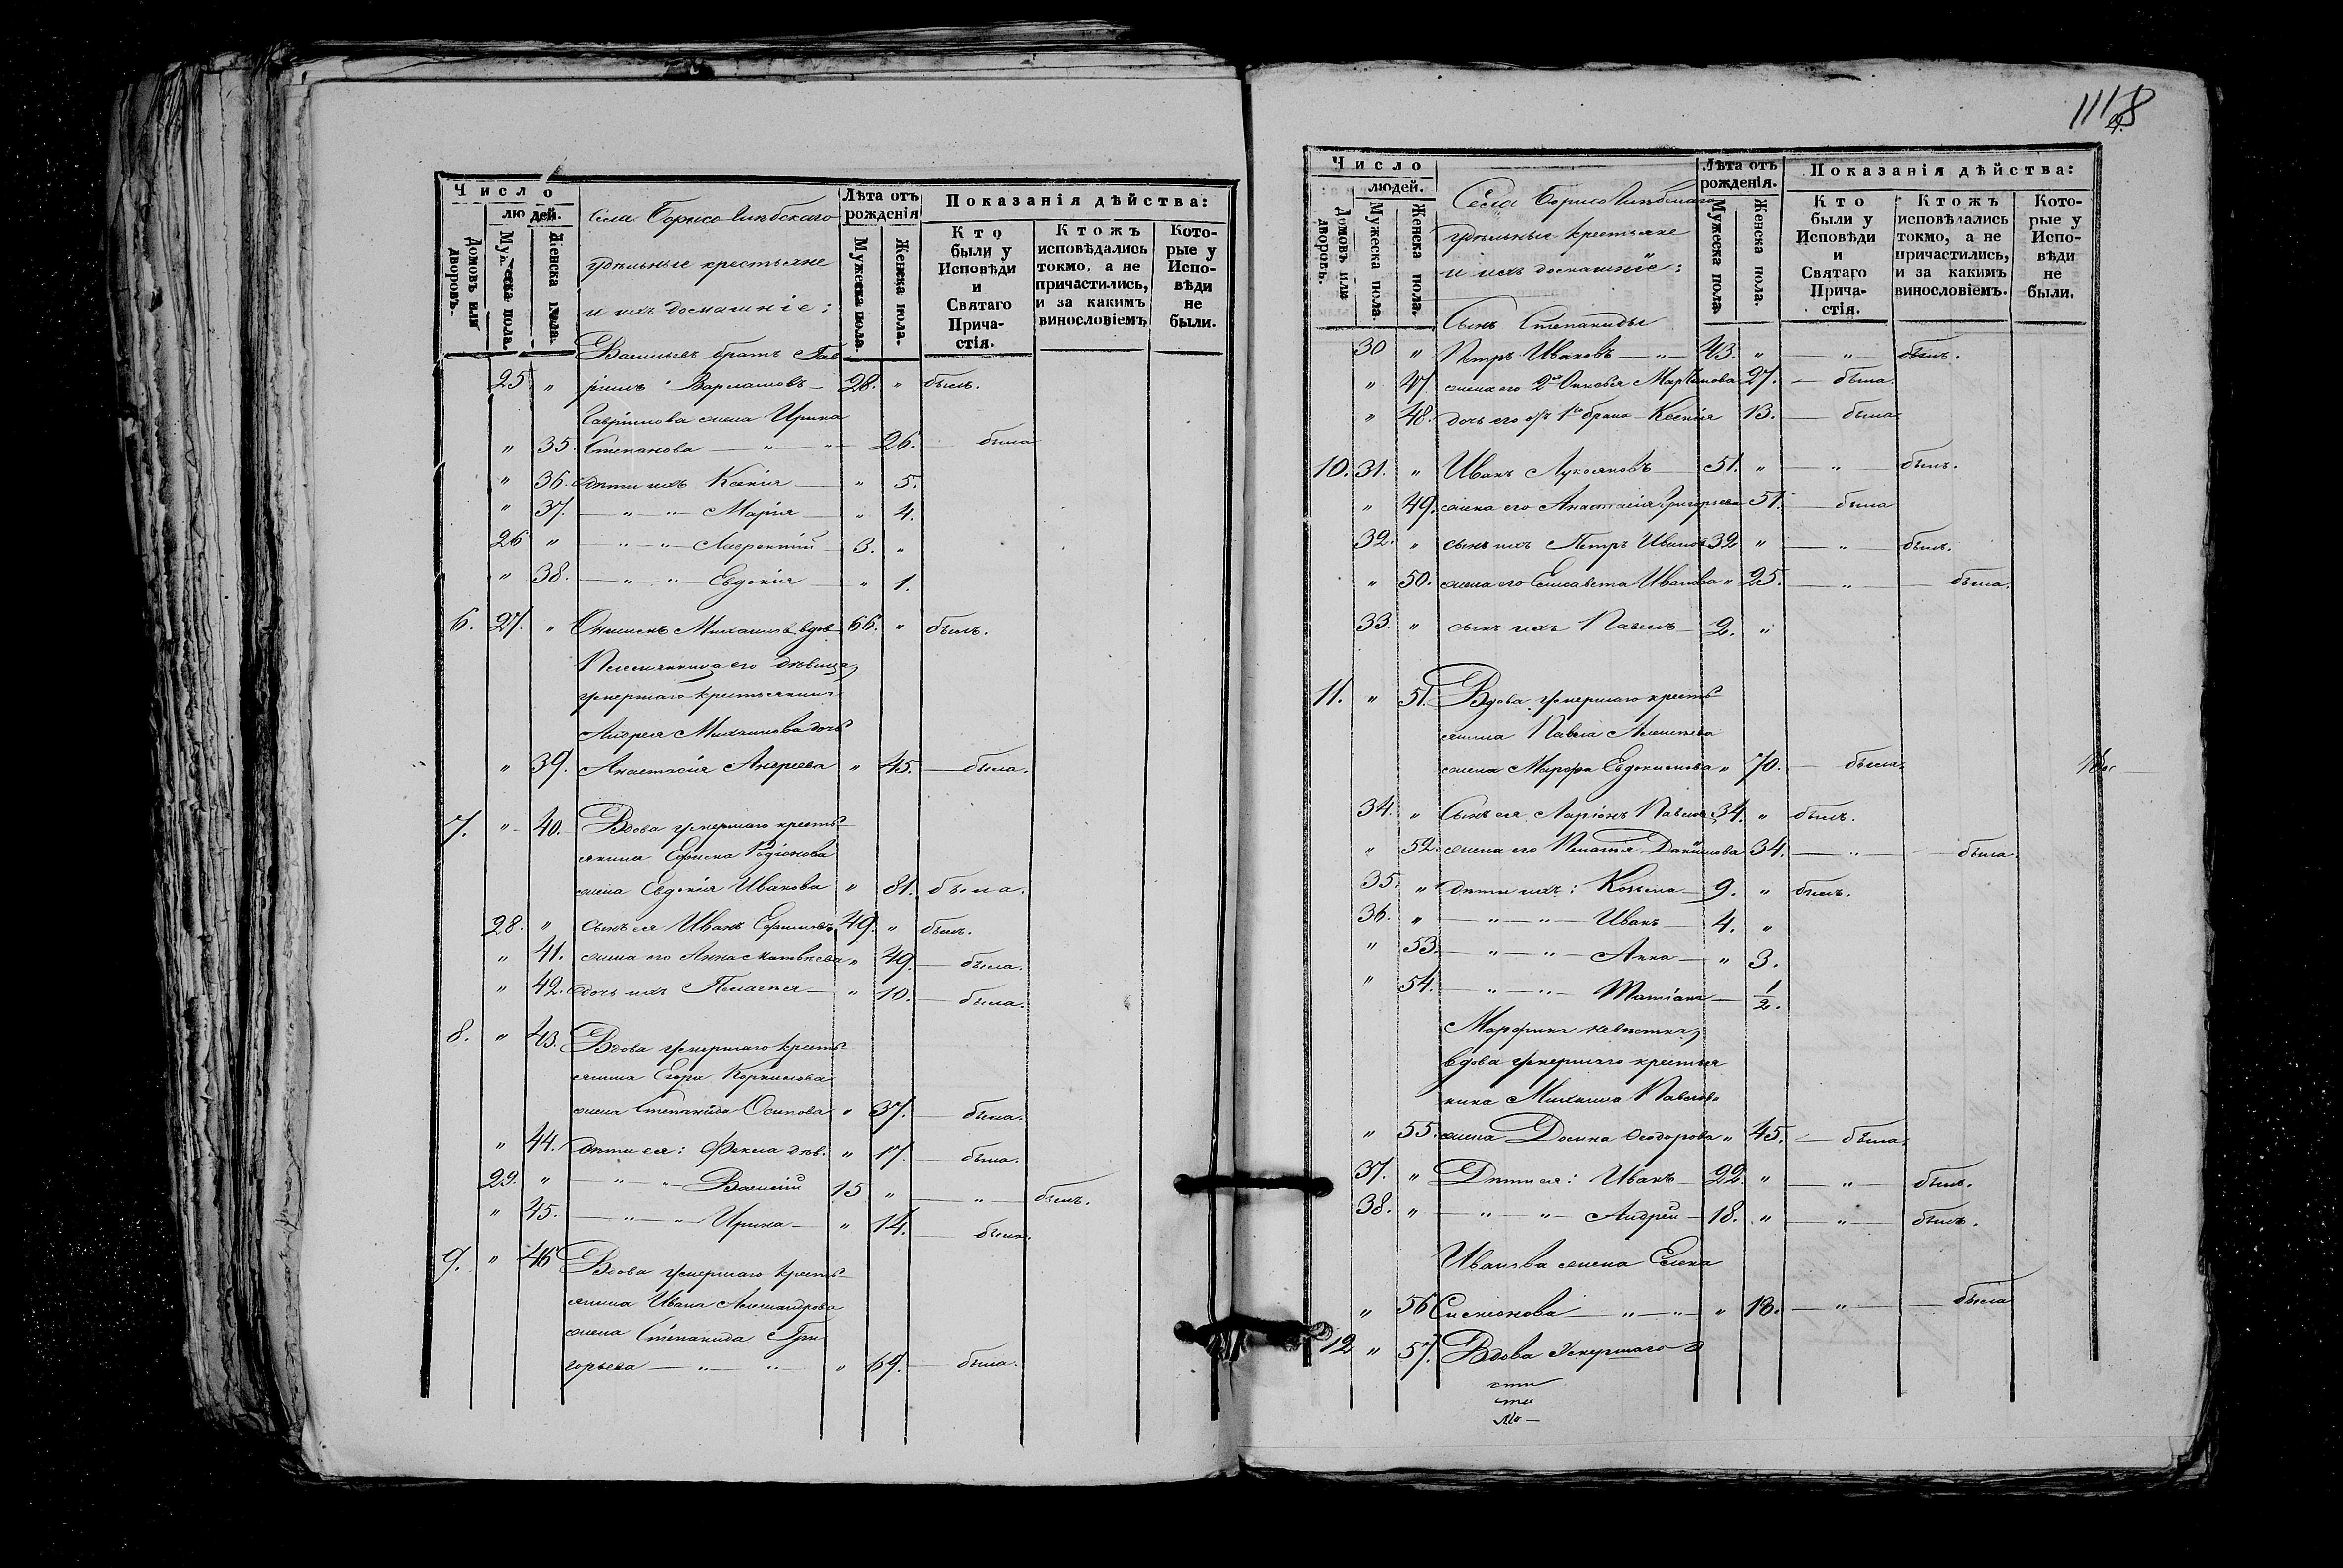 Число
людей.
Домовъ или дворовъ.
Мужеска пола.
Женска пола.
Села Борисо Глѣбскаго
удѣльные крестьяне
и ихъ домашніе:
Лѣта отъ рожденія
Мужеска пола.
Женска пола.
Показанія дѣйства:
Кто были у Исповѣди и Святаго Причастія.
Ктожъ исповѣдались токмо, а не причастились, и за какимъ винословіемъ
Которые у Исповѣди не были.
Васильевъ братъ Гав
25 " ріилъ Варламовъ — 28. " былъ.
Гавріилова жена Ирина
" 35. Степанова — " — " — 26. — была
" 36. дѣти ихъ Ксенія — " 5.
" 37. — " — " — Марія — " 4.
26 " — " — " — Лаврентій 3. "
" 38. — " — " — Евдокія — " 1.
6. 27. " Михаиловъ вдов 66. " былъ.
Племянница его дѣвица,
умершаго крестьянина
Андрея Михаилова дочь
" 39. Анастасія Андреева " 45. — была.
7. " 40. Вдова умершаго кресть-
янина Ефима Родіонова
жена Евдокія Иванова " 81. была.
28. " сынъ ея Иванъ Ефимовъ 49. " былъ.
" 41. жена его Анна Матвѣева " 49. — была.
" 42. дочь ихъ Пелагея — " 10. — была.
8. " 43. Вдова умершаго кресть-
янина Егора Корнилова
жена Степанида Осипова " 37. — была.
" 44. дѣти ея: Фекла дѣв. " 17. — была.
29. " — " — " — Василій 15 " — " — былъ.
" 45. — " — " — Ирина — " 14. — была.
9. " 46 Вдова умершаго кресть-
янина Ивана Александрова
жена Степанида Гри
горьева — " — " — " 69. — была.
1118
Число
людей.
Домовъ или дворовъ.
Мужеска пола.
Женска пола.
Села Борисо Глѣбскаго
удѣльные крестьяне
и ихъ домашніе:
Лѣта отъ рожденія.
Мужеска пола.
Женска пола.
Показанія дѣйства:
Кто были у Исповѣди и Святаго Причастія.
Ктожъ исповѣдались токмо, а не причастились, и за какимъ винословіемъ.
Которые у Исповѣди не были.
Сынъ Степаниды
30 " Петръ Ивановъ — " — 43. " — " — былъ.
" 47. жена его 2я Мартынова 27. — была.
" 48. дочь его отъ 1го брака — Ксенія 13. — была
10. 31. " Иванъ Лукояновъ — 51. " — " — былъ.
" 49. жена его Анастасія Григорьева 51. — была
32. " сынъ ихъ Петръ Ивановъ 32 " — " — былъ.
" 50. жена его Елисавета Иванова " 25. — " — была.
33. " сынъ ихъ Павелъ — 2. "
11. " 51. Вдова умершаго кресть-
янина Павла Алексѣева
жена Марфа Евдокимова " 70. — была.
34. " Сынъ ея Ларіонъ Павловъ 34. " былъ.
" 52. жена его Пелагея Даніилова 34. — " — была.
35. " дѣти ихъ: Козьма — 9. " былъ.
36. " — " — " — Иванъ — 4. "
" 53. — " — " — Анна — " 3.
" 54. — " — " — Татіана — 1/2.
Марфина невѣстка,
вдова умершаго крестья
нина Михаила Павлова
" 55. жена Домна Ѳеодорова " 45. — была.
37. " Дѣти ея: Иванъ — 22. " — " — былъ.
38. " — " — " — Андрей — 18. " — " — былъ.
Иванова жена Елена
" 56 Симеонова — " — " — " 18. — " — была
12 " 57. Вдова Умершаго